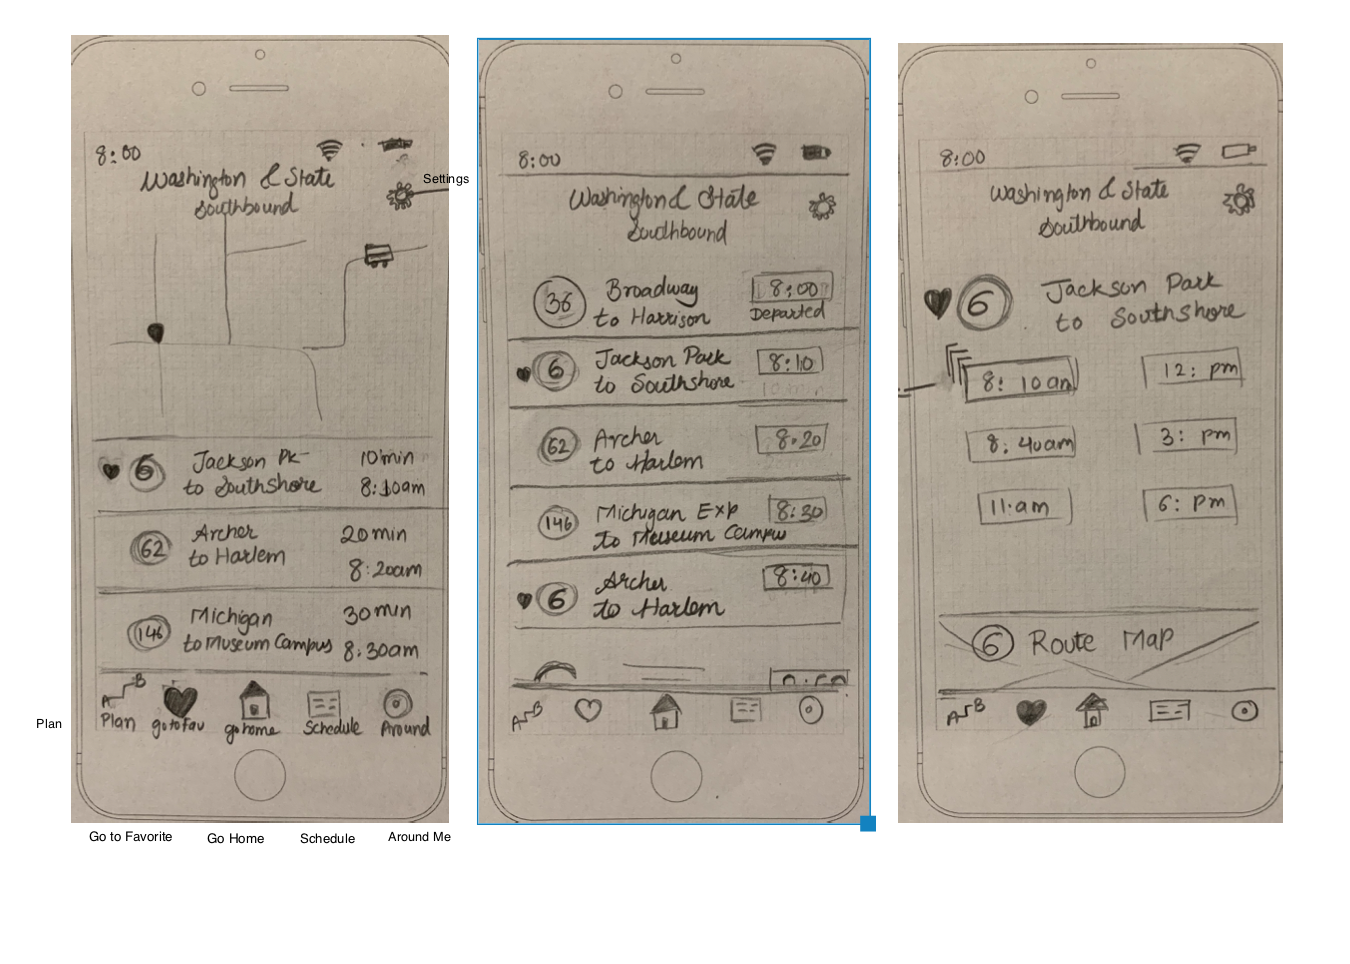 8:00
Washington & State
Southbound
Settings
6
Jackson Pk
to Southshore
10min
8:10am
62
Archer
to Harlem
20min
8:20am
146
Michigan
to Museum Campus
30min
8:30am
A B
Plan
go to Fav
go home
Schedule
Around
Plan
Go to Favorite
Go Home
Schedule
Around Me
8:00
Washington & State
Southbound
36
Broadway
to Harrison
8:00
Departed
6
Jackson Park
to Southshore
8:10
62
Archer
to Harlem
8:20
146
Michigan Exp
to Museum Campus
8:30
6
Archer
to Harlem
8:40
A B
8:00
Washington & State
Southbound
6
Jackson Park
to Southshore
8:10am
12: pm
8:40am
3: pm
11:am
6: pm
6 Route Map
A B